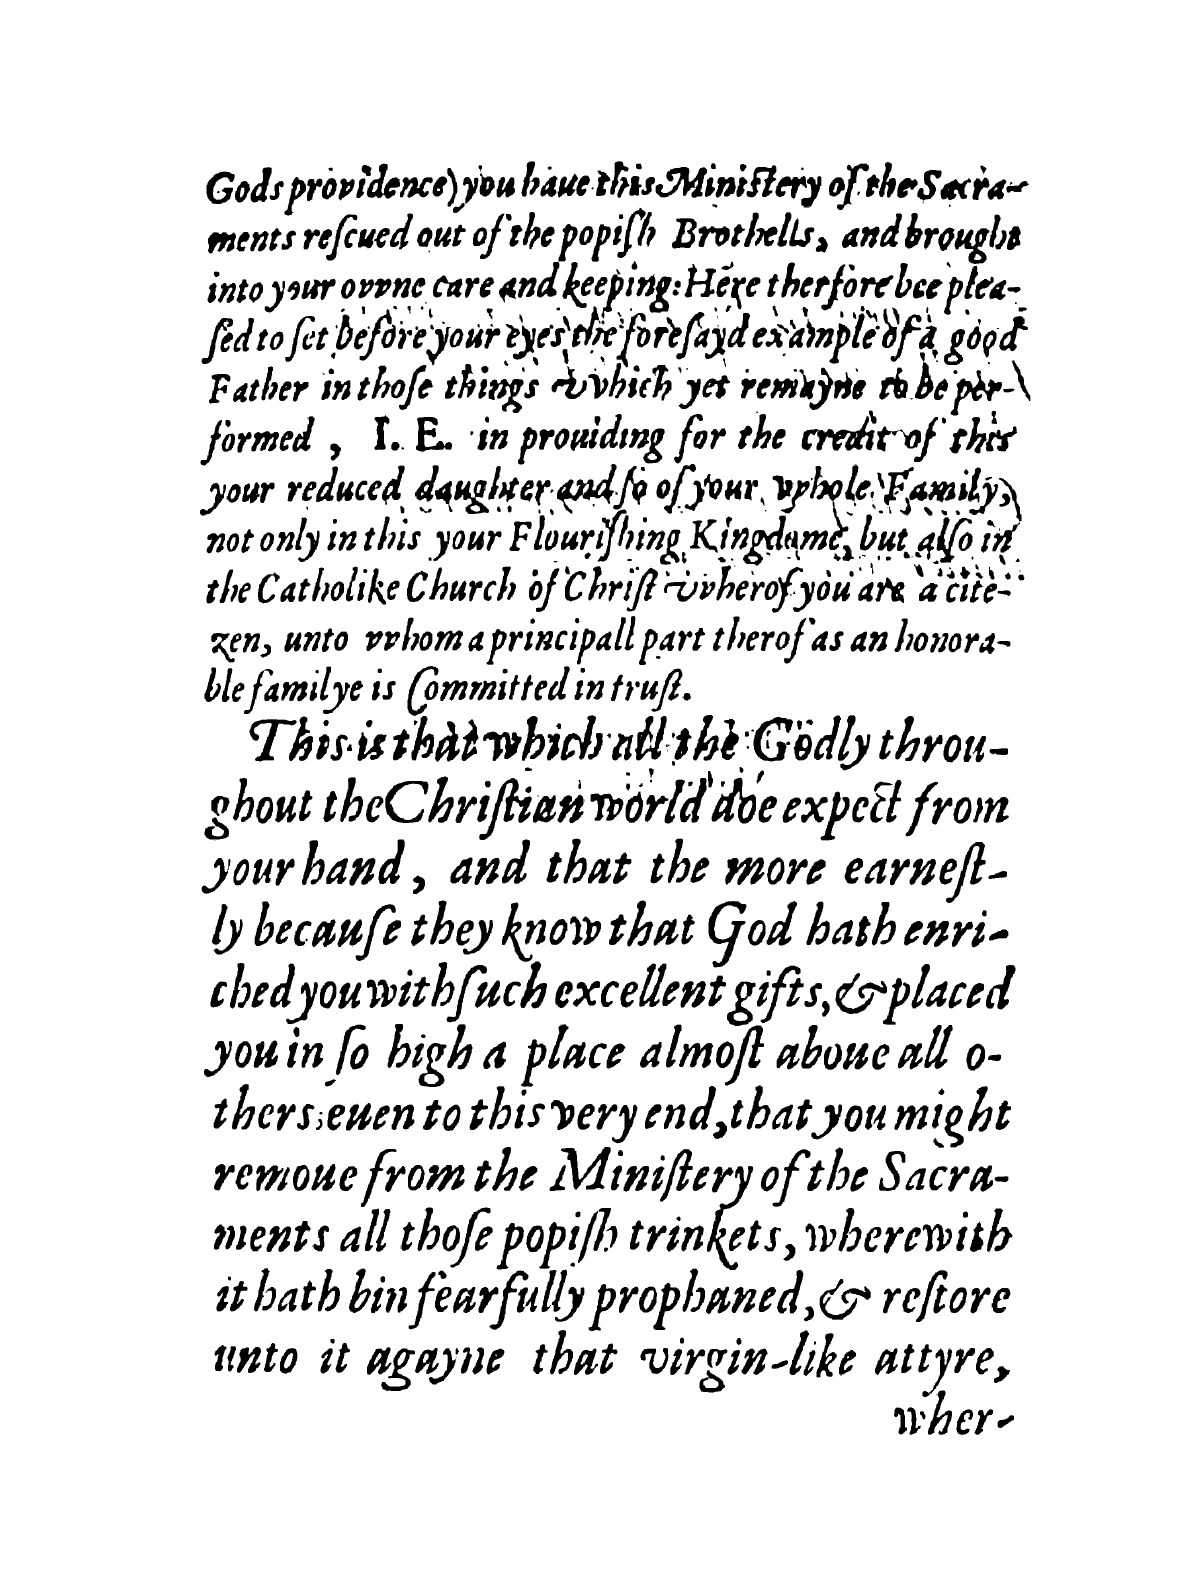 Gods providence) you haue this Miniſtery of the Sacra-
ments reſcued out of the popiſh Brothells, and brought
into your ovvne care and keeping: Here therfore bee plea-
ſed to ſet before your eyes the foreſayd example of a good
Father in thoſe things vvhich yet remayne to be per-
formed , I. E. in prouiding for the credit of this
your reduced daughter and ſo of your vvhole Family,
not only in this your Flouriſhing Kingdome, but alſo in
the Catholike Church of Chriſt vvherof you are a cite-
zen, unto vvhom a principall part therof as an honora-
ble familye is Committed in truſt.
This is that which all the Godly throu-
ghout the Chriſtian world doe expect from
your hand, and that the more earneſt-
ly becauſe they know that God hath enri-
ched you with ſuch excellent gifts, & placed
you in ſo high a place almoſt aboue all o-
thers; euen to this very end, that you might
remoue from the Miniſtery of the Sacra-
ments all thoſe popiſh trinkets, wherewith
it hath bin fearfully prophaned, & reſtore
unto it agayne that virgin-like attyre,
wher-